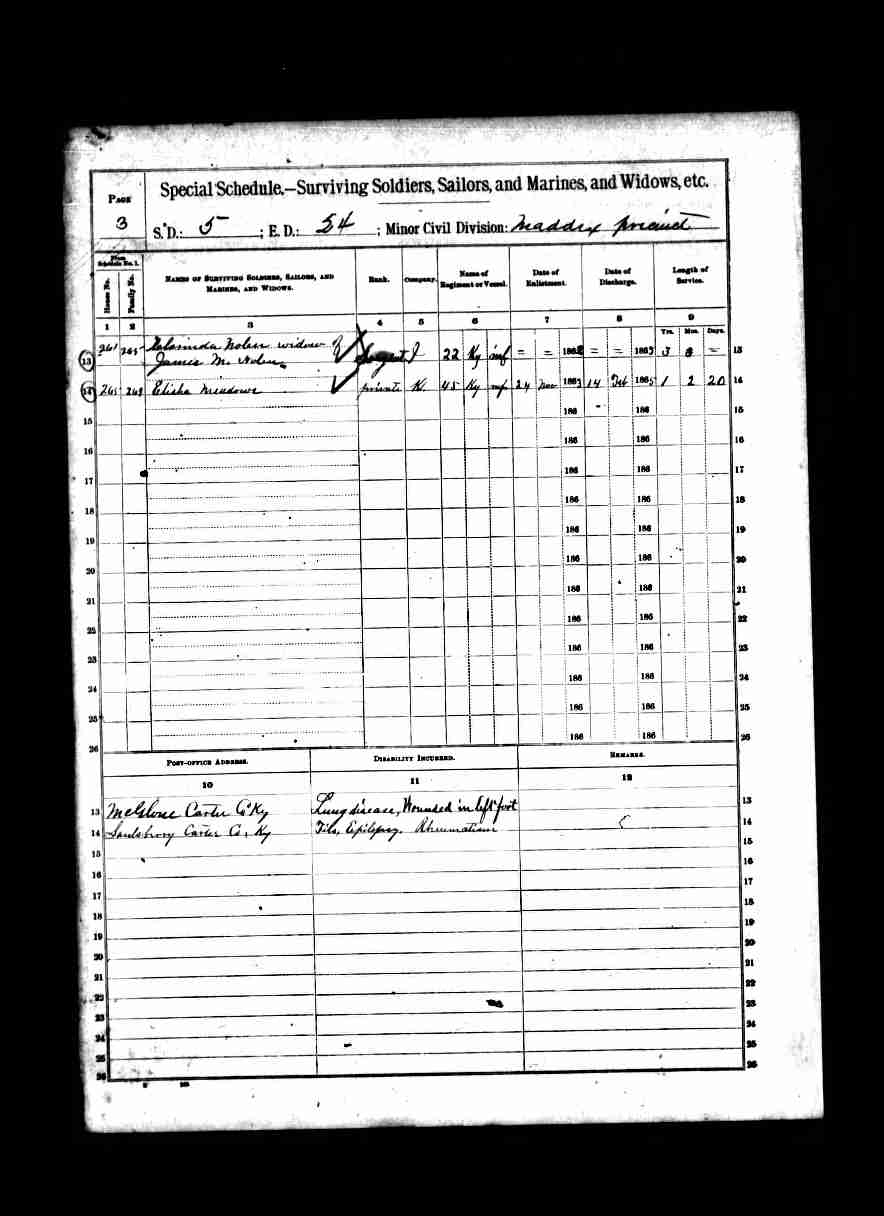 PAGE
3
Special Schedule.—Surviving Soldiers, Sailors, and Marines, and Widows, etc.
S. D.: 5 ; E. D.: 54 ; Minor Civil Division: Maddix precinct
From Schedule No. 1.
House No.
Family No.
NAMES OF SURVIVING SOLDIERS, SAILORS, AND MARINES, AND WIDOWS.
Rank.
Company.
Name of Regiment or Vessel.
Date of Enlistment.
Date of Discharge.
Length of Service.
1 2 3 4 5 6 7 8 9
Yrs. Mos. Days.
13 261 265 widow of
James M. Nolen Sergent I 22 Ky inf = = 1862 = = 1865 3 0 = 13
14 265 269 Elisha Meadows private K. 45 Ky inf 24 Nov 1863 14 Feb 1865 1 2 20 14
15 186 186 15
16 186 186 16
17 186 186 17
18 186 186 18
19 186 186 19
20 186 186 20
21 186 186 21
22 186 186 22
23 186 186 23
24 186 186 24
25 186 186 25
26 186 186 26
POST-OFFICE ADDRESS.
DISABILITY INCURRED.
REMARKS.
10 11 12
13 McGlone Carter Co Ky Lung disease, Wounded in left foot 13
14 Carter Co, Ky Fits, Epilepsy, Rheumatism 14
15 15
16 16
17 17
18 18
19 19
20 20
21 21
22 22
23 23
24 24
25 25
26 26